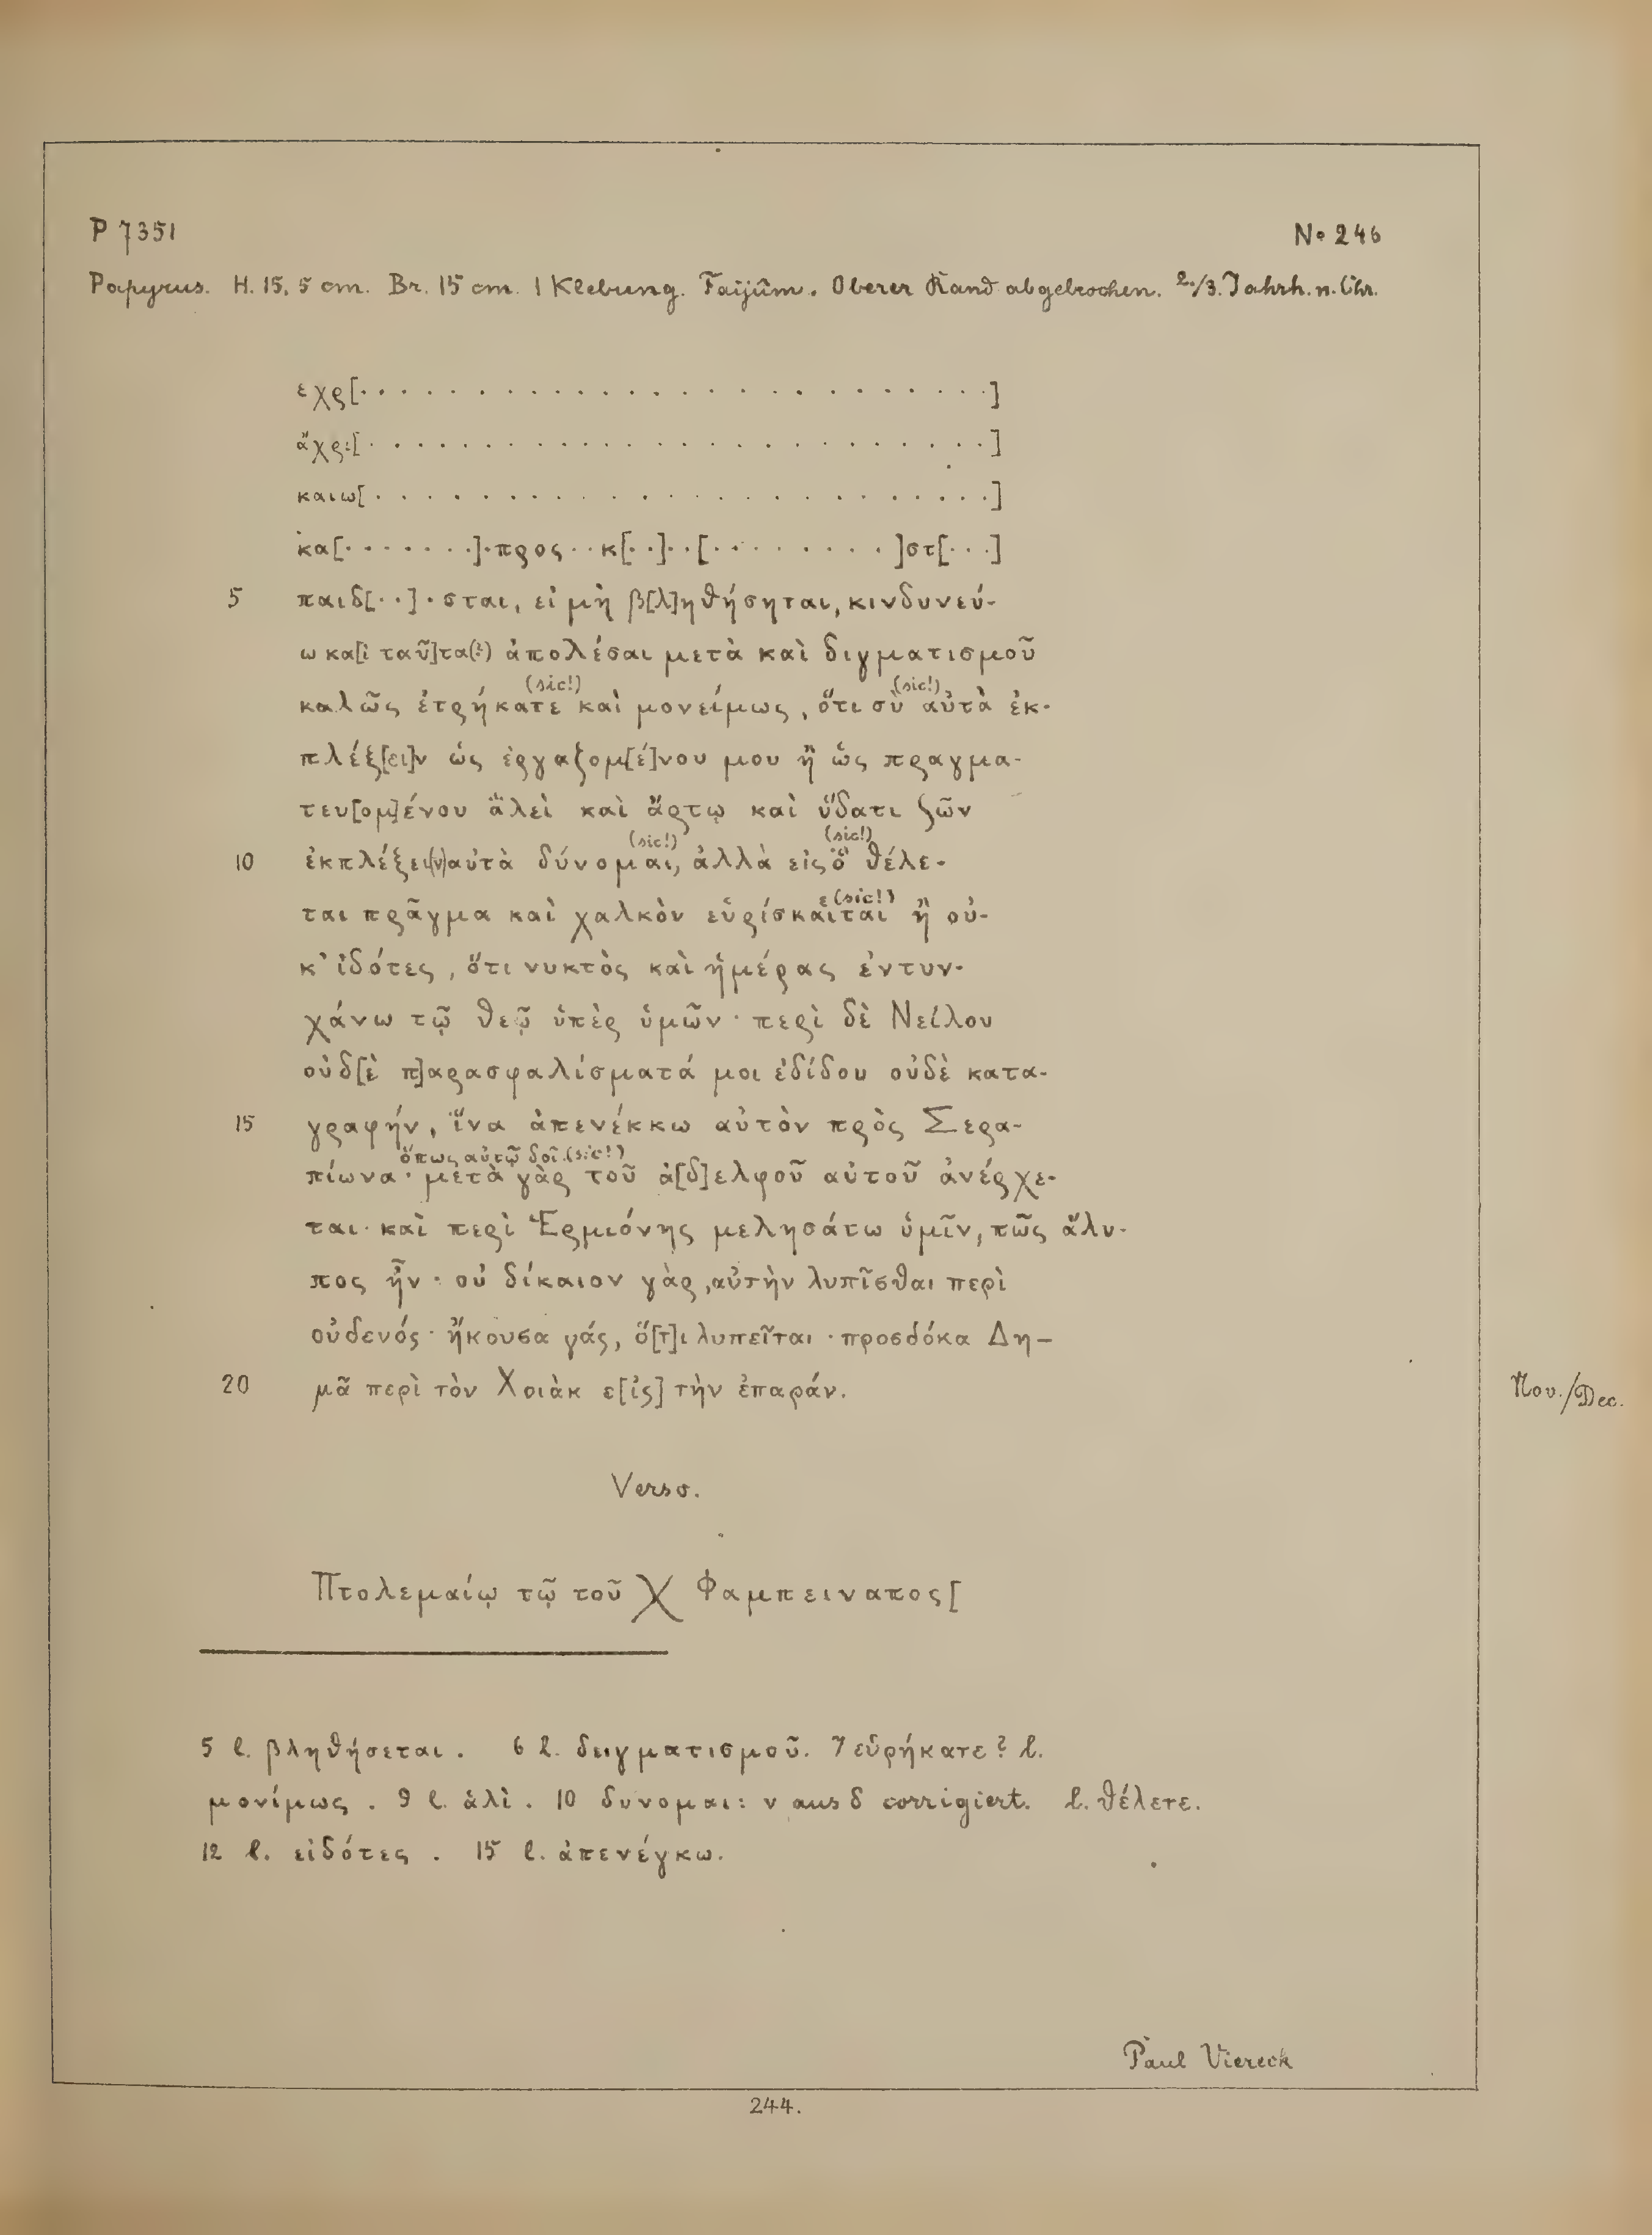 P 7351 No 246
Papyrus. H. 15,5 cm. Br. 15 cm. 1 Klebung. Faijûm. Oberer Rand abgebrochen. 2./3. Jahrh. n. Chr.
εχρ[· · · · · · · · · · · · · · · · · · · · · · · · · ·]
ἄχρι[· · · · · · · · · · · · · · · · · · · · · · · · ·]
καιω[· · · · · · · · · · · · · · · · · · · · · · · ·]
κα[· · · · · · ·]·προς··κ[··]··[· · · · · · · ·]στ[···]
5 παιδ[··]·σται, εἰ μὴ β[λ]ηθήσηται, κινδυνεύ-
ω κα[ὶ ταῦ]τα(?) ἀπολέσαι μετὰ καὶ διγματισμοῦ
(sic!) (sic!)
καλῶς ἑτρήκατε καὶ μονείμως, ὅτι σὺ αὐτὰ ἐκ-
πλέξ[ει]ν ὡς ἐργαζομ[έ]νου μου ἢ ὡς πραγμα-
τευ[ομ]ένου ἅλεὶ καὶ ἄρτῳ καὶ ὕδατι ζῶν
(sic!) (sic!)
10 ἐκπλέξει(ν) αὐτὰ δύνομαι, ἀλλὰ εἰς ὃ θέλε-
ε(sic!)
ται πρᾶγμα καὶ χαλκὸν εὑρίσκαιται ἢ οὐ-
κ' ἰδότες, ὅτι νυκτὸς καὶ ἡμέρας ἐντυν-
χάνω τῷ θεῷ ὑπὲρ ὑμῶν· περὶ δὲ Νείλου
οὐδ[ὲ π]αρασφαλίσματά μοι ἐδίδου οὐδὲ κατα-
15 γραφήν, ἵνα ἀπενέκκω αὐτὸν πρὸς Σερα-
ὅπως αὐτῷ δοῖ (sic!)
πίωνα· μετὰ γὰρ τοῦ ἀ[δ]ελφοῦ αὐτοῦ ἀνέρχε-
ται· καὶ περὶ Ἑρμιόνης μελησάτω ὑμῖν, πῶς ἄλυ-
πος ἦν· οὐ δίκαιον γὰρ, αὐτὴν λυπῖσθαι περὶ
οὐδενός· ἤκουσα γάς, ὅ[τ]ι λυπεῖται· προσδόκα Δη-
20 μᾶ περὶ τὸν Χοιὰκ ε[ἰς] τὴν ἐπαράν. Nov./Dec.
Verso.
Πτολεμαίῳ τῷ τοῦ X Φαμπειναπος[
5 l. βληθήσεται. 6 l. δειγματισμοῦ. 7 εὑρήκατε? l.
μονίμως. 9 l. ἁλὶ. 10 δυνομαι: ν aus δ corrigiert. l. θέλετε.
12 l. εἰδότες. 15 l. ἀπενέγκω.
Paul Viereck
244.